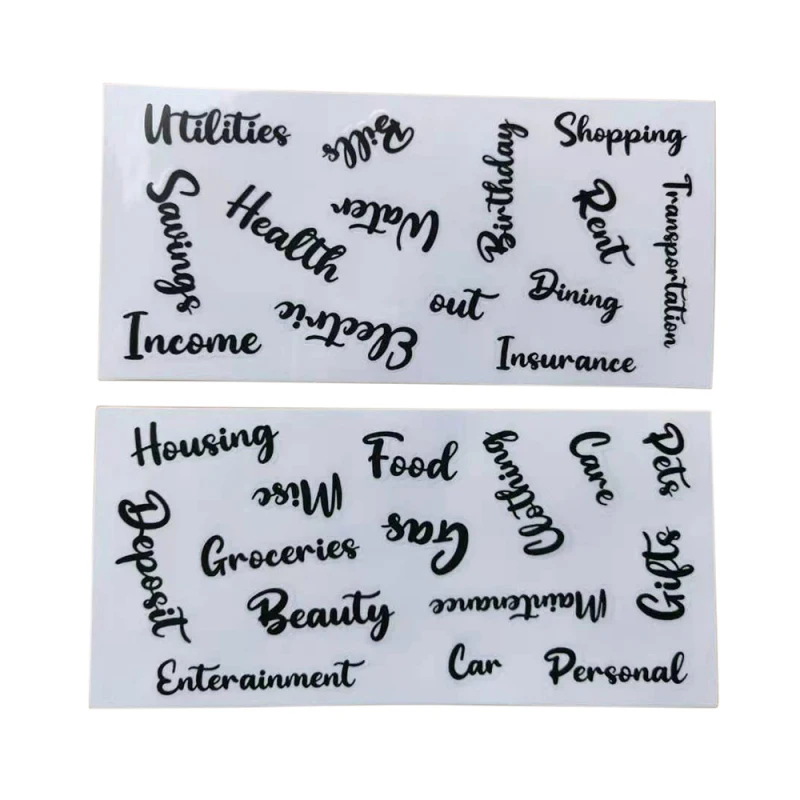 Utilities
Bills
Birthday
Shopping
Savings
Health
Water
Rent
Transportation
Electric
out
Dining
Income
Insurance
Housing
Food
Clothing
Care
Pets
Misc
Deposit
Groceries
Gas
Gifts
Beauty
Maintenance
Enterainment
Car
Personal